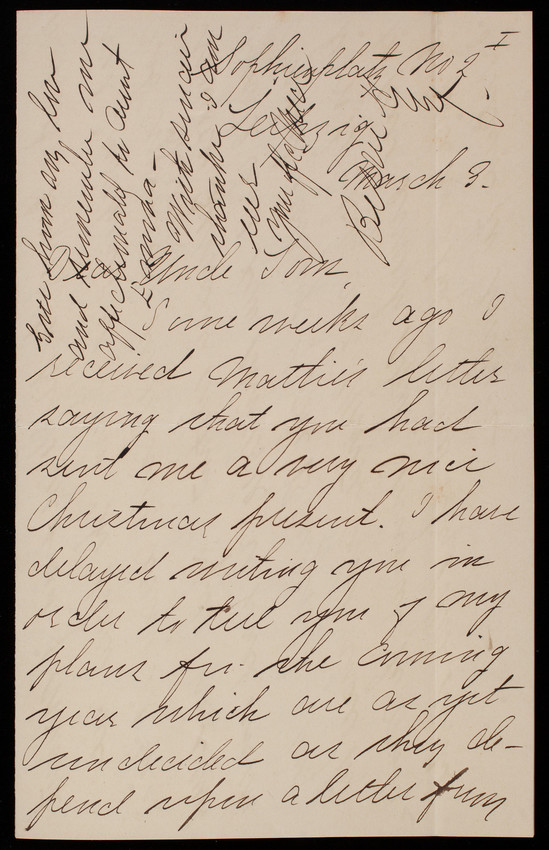 Sophienplatz No 2 I
Leipzig
March 3.
Dear Uncle Tom,
Some weeks ago I
received Mattie's letter
saying that you had
sent me a very nice
Christmas present. I have
delayed writing you in
order to tell you of my
plans for the coming
year which are as yet
undecided as they de-
pend upon a letter from
and remember me
affectionately to Aunt
Emma-
With sincere
thanks I am
ever
your